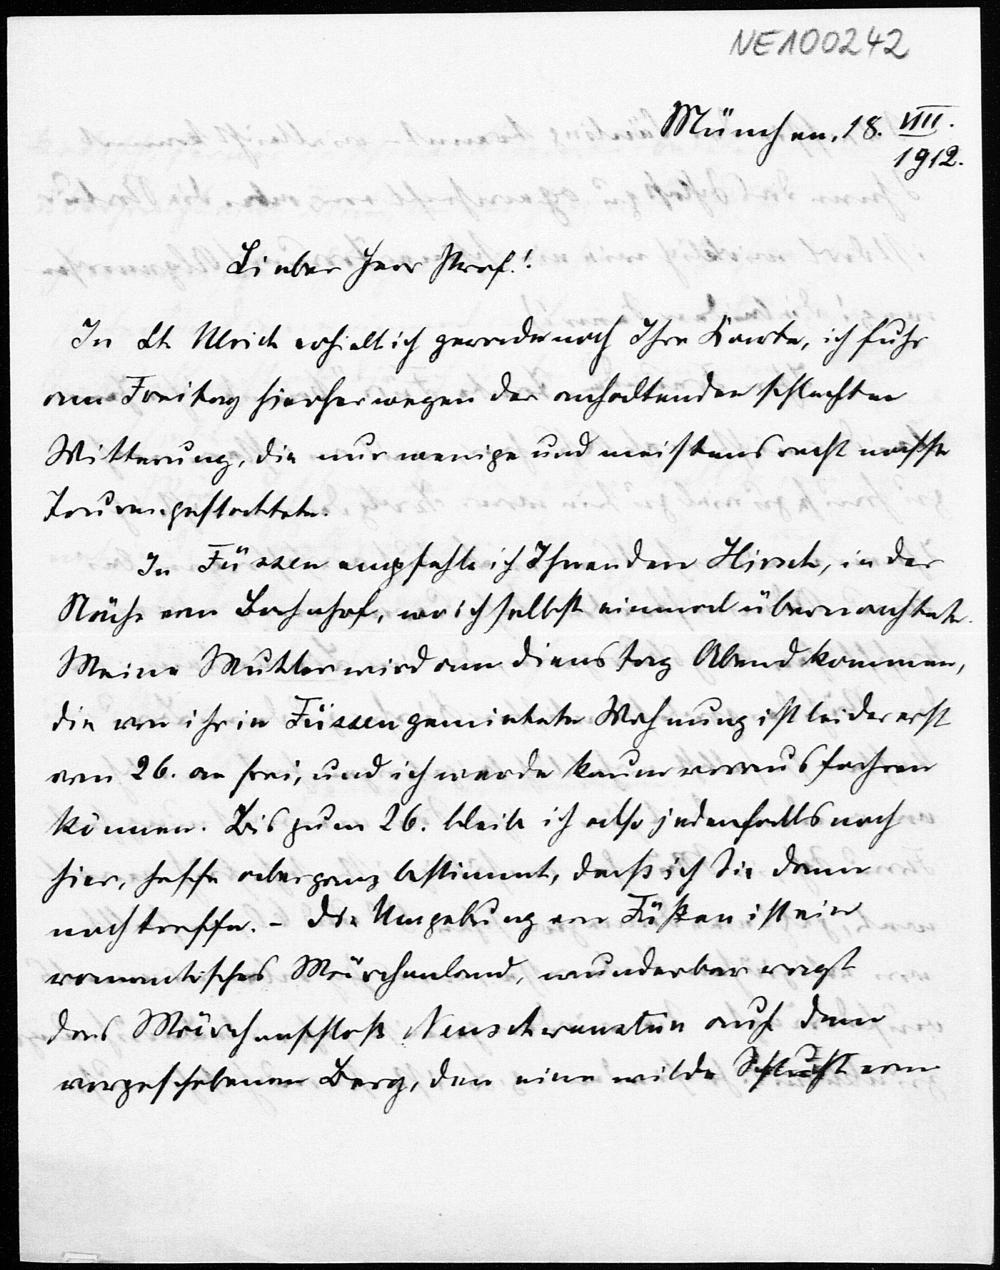 NE100242
München, 18. VIII.
1912.
Lieber Herr Prof.!
In St. Ulrich erhielt ich gerade noch Ihre Karte, ich fuhr
am Freitag hierher wegen der anhaltenden schlechten
Witterung, die nur wenige und meistens recht nasse
Touren gestattete.
In Füssen empfehle ich Ihnen den Hirsch, in der
Nähe vom Bahnhof, wo ich selbst einmal übernachtete.
Meine Mutter wird am Dienstag Abend kommen,
die von ihr in Füssen gemietete Wohnung ist leider erst
vom 26. an frei, und ich werde kaum vorausfahren
können. Bis zum 26. bleib ich also jedenfalls noch
hier, hoffe aber ganz bestimmt, daß ich Sie dann
noch treffe. – Die Umgebung von Füßen ist ein
romantisches Märchenland, wunderbar ragt
das Märchenschloß Neuschwanstein auf dem
vorgeschobenen Berg, den eine wilde Schlucht vom